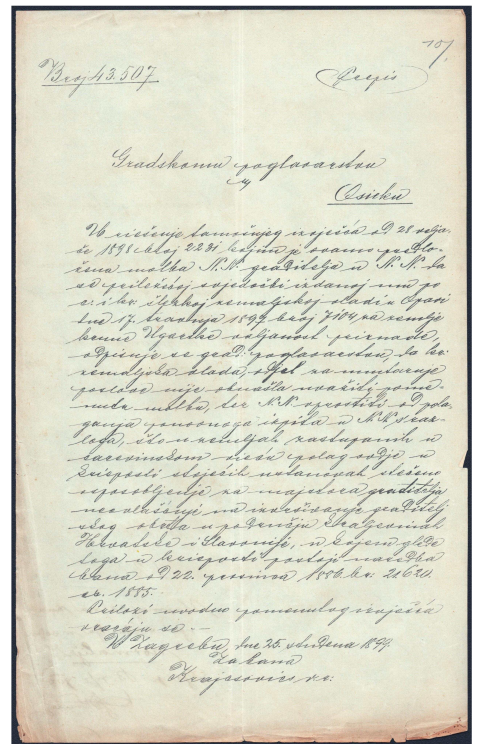 107.
Broj 43.507
Prepis
Gradskomu poglavarstvu
u
Osieku
U riešenje tamošnjeg izvješća od 28 velja-
če 1898 broj 2231 kojim je ovamo predlo-
žena molba N. N. graditelja u N. N. da
se priležećoj svjedočbi izdanoj mu po
c. i kr. zemaljskoj vladi u Opavi
dne 17. travnja 1899 broj 7104 za zemlje
krune Ugarske valjanost prizna,
odpisuje se grad. poglavarstvu, da kr.
zemaljska vlada, odjel za unutarnje
poslove nije obnašla uvažiti pome-
nutu molbu, ter N N oprostiti od pola-
ganja ponovnoga ispita u N. N. s raz-
loga, što u zemljah zastupanih u
carevinskom vieću polag ondje u
krieposti stojećih ustanovah stečeno
osposobljenje za majstora graditelja
neovlašćuje na izvršivanje graditelj-
skog obrta u području kraljevinah
Hrvatske i Slavonije, u kojem gledе
toga u krieposti postoji naredba
bana od 22. prosinca 1886 br. 21624
ex. 1885.
Prilozi uvodno pomenutog izvješća
vraćaju se. —
U Zagrebu, dne 25. studena 1899.
Za bana
Krajcsovics v. r.